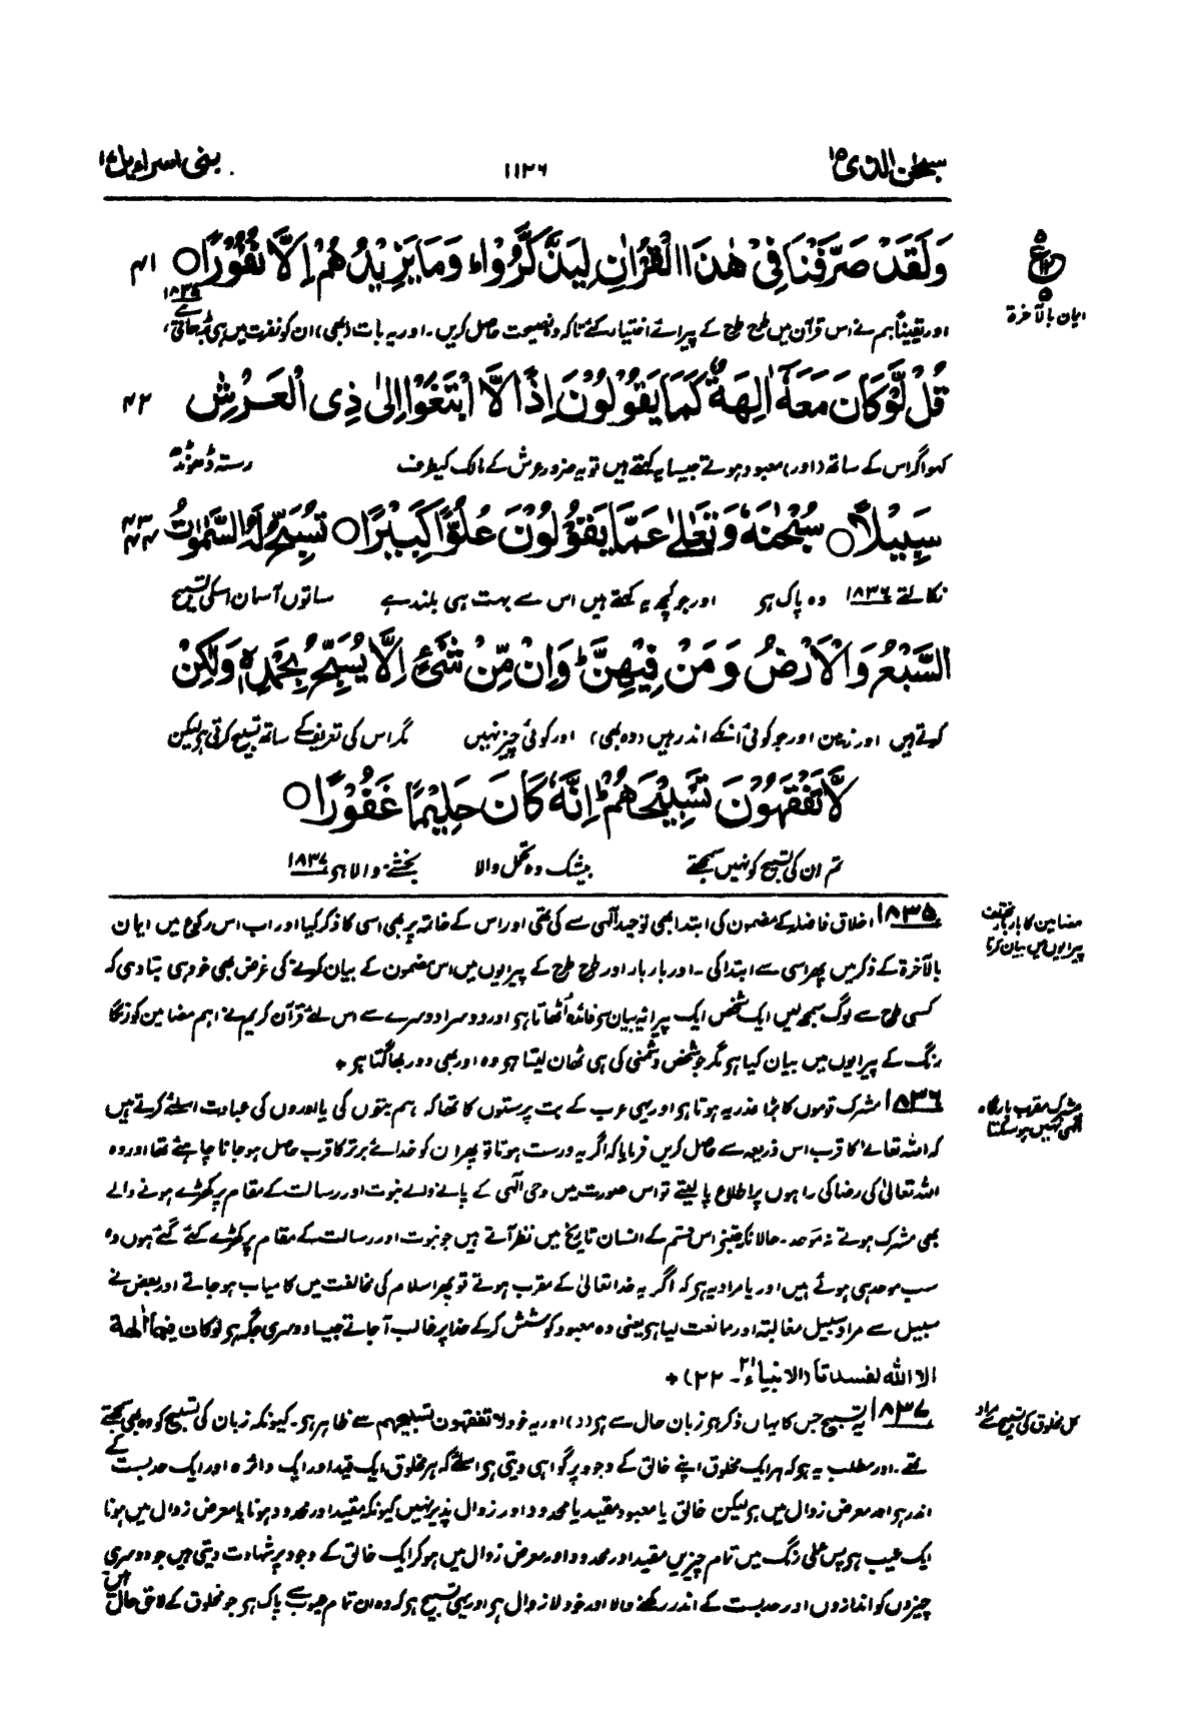 سبحٰن الذی ۱۵
۱۱۲۶
بنی اسراویل ۱۷
وَلَقَدْ صَرَّفْنَا فِیْ ھٰذَا الْقُرْاٰنِ لِیَذَّکَّرُوْاء وَمَا یَزِیْدُھُمْ اِلَّا نُفُوْرًا ○ ۴۱
اور یقیناً ہم نے اس قرآن میں طرح طرح کے پیرائے اختیار کئے تاکہ وہ نصیحت حاصل کریں ۔ اور یہ بات (بھی) ان کو نفرت میں ہی بڑھاتی ہے ۱۸۳۵
ایمان بالآخرۃ
قُلْ لَّوْ کَانَ مَعَہٗۤ اٰلِھَۃٌ کَمَا یَقُوْلُوْنَ اِذًا لَّا ابْتَغَوْا اِلٰی ذِی الْعَرْشِ ۴۲
کہو اگر اس کے ساتھ (اور) معبود ہوتے جیسا یہ کہتے ہیں تو یہ ضرور عرش کے مالک کیطرف رستہ ڈھونڈھ
سَبِیْلًا ○ سُبْحٰنَہٗ وَتَعٰلٰی عَمَّا یَقُوْلُوْنَ عُلُوًّا کَبِیْرًا ○ تُسَبِّحُ لَہُ السَّمٰوٰتُ ۴۳ ۴۴
نکالتے ۱۸۳۶ وہ پاک ہو اور جو کچھ یہ کہتے ہیں اس سے بہت ہی بلند ہے ساتوں آسمان اسکی تسبیح
السَّبْعُ وَالْاَرْضُ وَمَنْ فِیْھِنَّ ؕ وَاِنْ مِّنْ شَیْءٍ اِلَّا یُسَبِّحُ بِحَمْدِہٖ وَلٰکِنْ
کرتے ہیں اور زمین اور جو کوئی انکے اندر ہیں (وہ بھی) اور کوئی چیز نہیں مگر اس کی تعریف کے ساتھ تسبیح کرتی ہو لیکن
لَّا تَفْقَھُوْنَ تَسْبِیْحَھُمْ ؕ اِنَّہٗ کَانَ حَلِیْمًا غَفُوْرًا ○
تم ان کی تسبیح کو نہیں سمجھتے بیشک وہ تحمل والا بخشنے والا ہو ۱۸۳۷
۱۸۳۵ اخلاق فاضلہ کے مضمون کی ابتدا بھی توحید الٰہی سے کی تھی اور اس کے خاتمہ پر بھی اسی کا ذکر کیا اور اب اس رکوع میں ایمان
مضامین کا بار بار مختلف پیرایوں میں بیان کرنا
بالآخرۃ کے ذکر میں پھر اسی سے ابتدا کی ۔ اور بار بار اور طرح طرح کے پیرایوں میں اس مضمون کے بیان کرنے کی غرض بھی خود ہی بتا دی کہ
کسی طرح سے لوگ سمجھ لیں ایک شخص ایک پیرائیہ بیان سو فائدہ اُٹھاتا ہو اور دوسرا دوسرے سے اس لئے قرآن کریم نے اہم مضامین کو رنگا
رنگ کے پیرایوں میں بیان کیا ہو مگر جو شخص دشمنی کی ہی ٹھان لیتا ہو وہ اور بھی دور بھاگتا ہو +
۱۸۳۶ مشرک قوموں کا بڑا عذر یہ ہوتا ہو اور یہی عرب کے بت پرستوں کا تھا کہ ہم بتوں کی یا اوروں کی عبادت اسلئے کرتے ہیں
مشرک مقرب بارگاہ الٰہی نہیں ہو سکتا
کہ اللہ تعالےٰ کا قرب اس ذریعہ سے حاصل کریں فرمایا کہ اگر یہ درست ہوتا تو پھر ان کو خدائے برتر کا قرب حاصل ہو جانا چاہئے تھا اور وہ
اللہ تعالیٰ کی رضا کی راہوں پر اطلاع پا لیتے تو اس صورت میں وحی الٰہی کے پانے والے نبوت اور رسالت کے مقام پر کھڑے ہونے والے
بھی مشرک ہوتے نہ موحد ۔ حالانکہ جتنے اس قسم کے انسان تاریخ میں نظر آتے ہیں جو نبوت اور رسالت کے مقام پر کھڑے کئے گئے ہوں وہ
سب موحد ہی ہوئے ہیں اور یا مراد یہ ہو کہ اگر یہ خدا تعالیٰ کے مقرب ہوتے تو پھر اسلام کی مخالفت میں کامیاب ہو جاتے اور بعض نے
سبیل سے مراد سبیل مغالبتہ اور ممانعت لیا ہو یعنی وہ معبود کوشش کر کے خدا پر غالب آ جاتے جیسا دوسری جگہ ہو لوکان فیھما اٰلھۃ
الا اللہ لفسدتا (الانبیاء ۲۱ ۔ ۲۲) +
۱۸۳۷ یہ تسبیح جس کا یہاں ذکر ہو زبان حال سے ہو (د) اور یہ خود لا تفقھون تسبیحھم سے ظاہر ہو ۔ کیونکہ زبان کی تسبیح کو وہ بھی سمجھتے
کل مخلوق کی تسبیح سے مراد
تھے ۔ اور مطلب یہ ہو کہ ہر ایک مخلوق اپنے خالق کے وجود پر گواہی دیتی ہو اسلئے کہ ہر مخلوق ایک قید اور ایک دائرہ اور ایک حد بست کے
اندر ہو اور معرض زوال میں ہو لیکن خالق یا معبود مقید یا محدود اور زوال پذیر نہیں کیونکہ مقید اور محدود ہونا یا معرض زوال میں ہونا
ایک عیب ہو پس عملی رنگ میں تمام چیزیں مقید اور محدود اور معرض زوال میں ہو کر ایک خالق کے وجود پر شہادت دیتی ہیں جو دوسری
چیزوں کو اندازوں اور حد بست کے اندر رکھنے والا اور خود لازوال ہو اور یہی تسبیح ہو کہ وہ ان تمام عیوب سے پاک ہو جو مخلوق کے لاحق حال ہیں